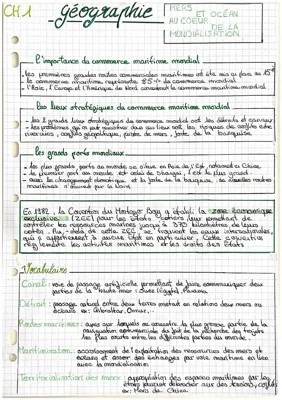 CH 1
-géographie
MERS
ET OCÉAN
AU COEUR
DE LA
MONDIALISATION
L'importance du commerce maritime mondial
- Les premières grandes routes commerciales maritimes ont été mis en place au 15e
- Le commerce maritime représente % du commerce mondial
- L'Asie, l'Europe et l'Amérique du Nord dominent le commerce maritime mondial
Des lieux stratégiques du commerce maritime mondial
- Les 2 grands lieux stratégiques du commerce mondial sont les détroits et canaux
- Les problèmes qu'on peut rencontrer dans ces lieux sont les risques de conflits entre
riverains, conflits géopolitiques, pirates de mers, fonte de la banquise.
Les grands ports mondiaux
- Les plus grands ports du monde se situe en Asie de l'Est, notamment en Chine.
- Le premier port du monde est celui de Shangai, c'est le plus grand
- Avec les changements climatiques et la fonte de la banquise, de nouvelles routes
maritimes s'ouvrent par le Nord.
En 1982, la Convention du Montego Bay a établi la zone économique
exclusive (ZEE) pour les États côtiers leur permettant de
contrôler les ressources marines jusqu'à 370 kilomètres de leurs
côtes. Au-delà de cette ZEE, se trouvent les eaux internationales,
qui n'appartiennent à aucun État en particulier. Cette convention
réglemente les activités maritimes et les droits des États
Vocabulaire
Canal: voie de passage artificielle permettant de faire communiquer deux
parties de la Mer. ex: Suez, Panama.
Détroit: passage naturel entre deux terres mettant en relations deux mers ou
océans ex: Gibraltar, Ormuz, ..
Routes maritimes: axes sur lesquels se concentre la plus grande partie de la
navigation commerciale du fait de la recherche des trajets
les plus courts entre les différentes parties du monde.
Maritimisation: accroissement de l'exploitation des ressources des mers et
océans et essor des échanges par voie maritime en lien
avec la mondialisation
Territorialisation des mers: appropriation des espaces maritimes par les
états pouvant déboucher sur des tensions, conflits
ex: Mers de Chine